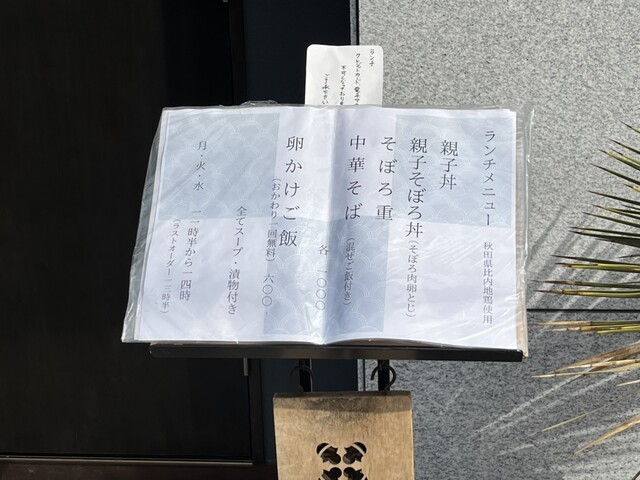 ランチ
ランチメニュー 秋田県比内地鶏使用
親子丼
親子そぼろ丼(そぼろ肉卵とじ)
そぼろ重
中華そば(混ぜご飯付き)
各 一〇〇〇
卵かけご飯
(おかわり一回無料) 六〇〇
全てスープ・漬物付き
月・火・水 一一時半から一四時
(ラストオーダー一三時半)